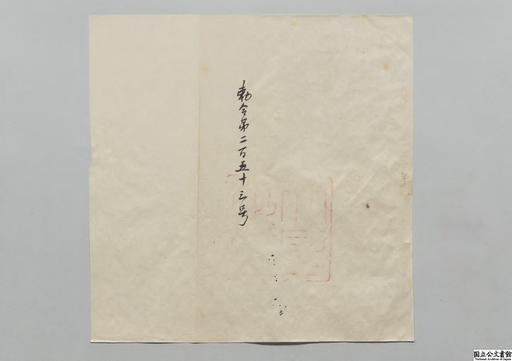 勅令第二百五十三号
国立公文書館
National Archives of Japan